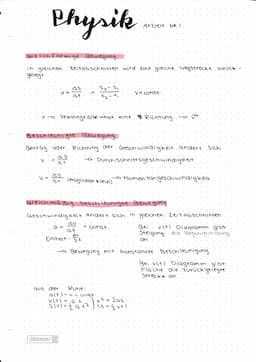 Physik Arbeit Nr.1
Gleichförmige Bewegung
in gleichen Zeitabschnitten wird eine gleiche Wegstrecke zurück-
gelegt
v = Δs/Δt = s₂-s₁/t₂-t₁ v=const.
v → Vektorgröße hat eine Richtung →
Beschleunigte Bewegung
Betrag oder Richtung der Geschwindigkeit ändert sich
v = Δs/Δt → Durchschnittsgeschwindigkeit
v = Δs/Δt (möglichst klein) → Momentangeschwindigkeit
Gleichmäßig beschleunigte Bewegung
Geschwindigkeit ändert sich in gleichen Zeitabschnitten
a = Δv/Δt = const. Bei v(t) Diagramm gibt
Einheit: m/s² Steigung die Beschleunigung
an
→ Bewegung mit konstanter Beschleunigung
Bei v(t) Diagramm gibt
Fläche die zurückgelegte
Strecke an
aus der Ruhe:
a(t) = a = const.
v(t) = a·t v² = 2as
s(t) = ½ a·t²